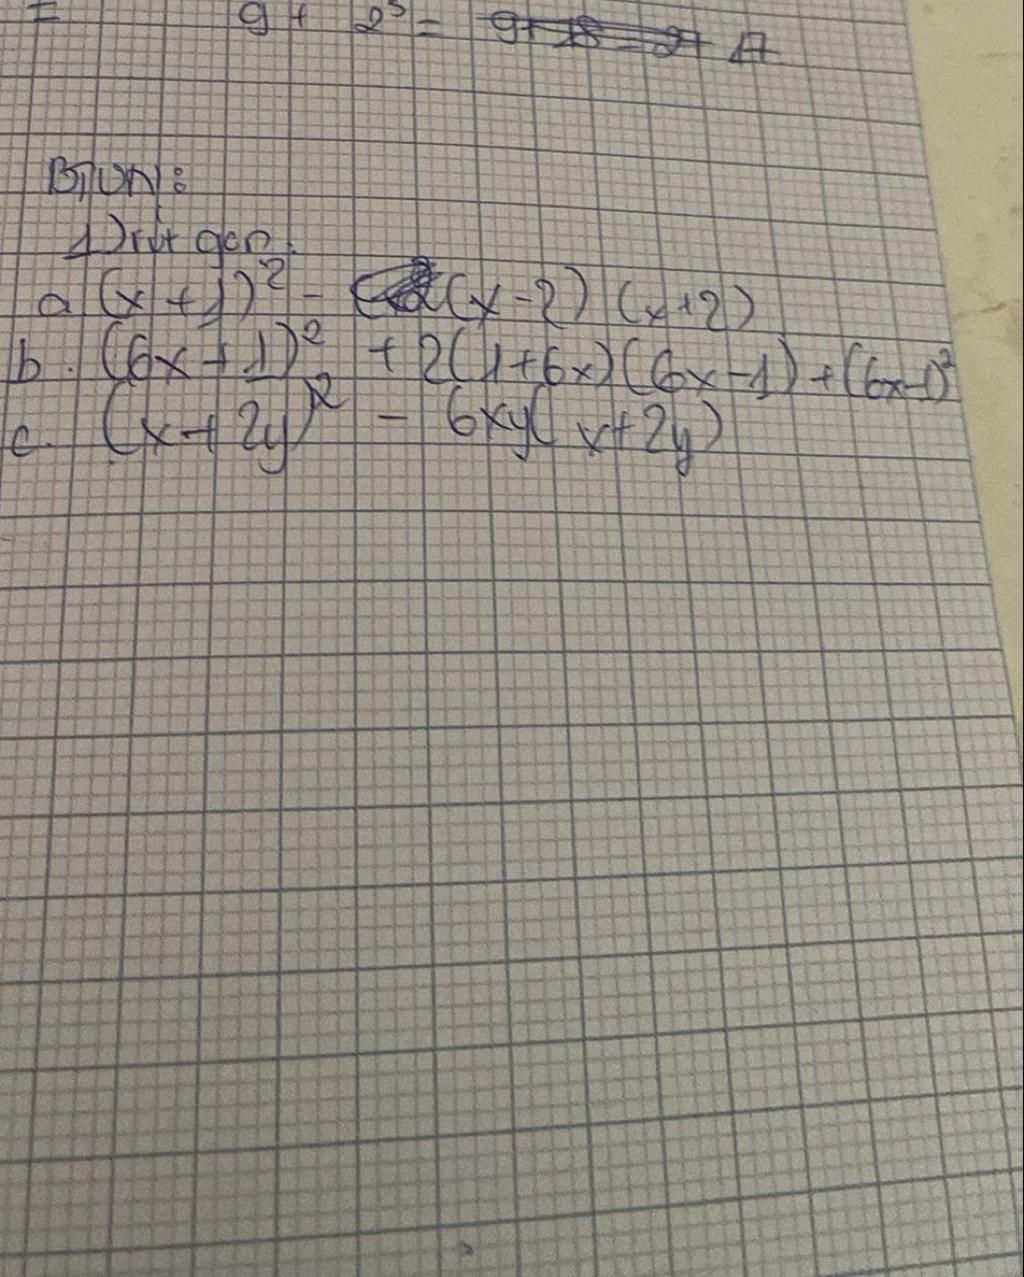 = 9 + 2³ = 17
BTVN:
1) rút gọn:
a (x + 1)² - (x - 2) (x + 2)
b. (6x + 1)² + 2(1+6x)(6x-1) + (6x-1)²
c. (x + 2y)² - 6xy(x+2y)